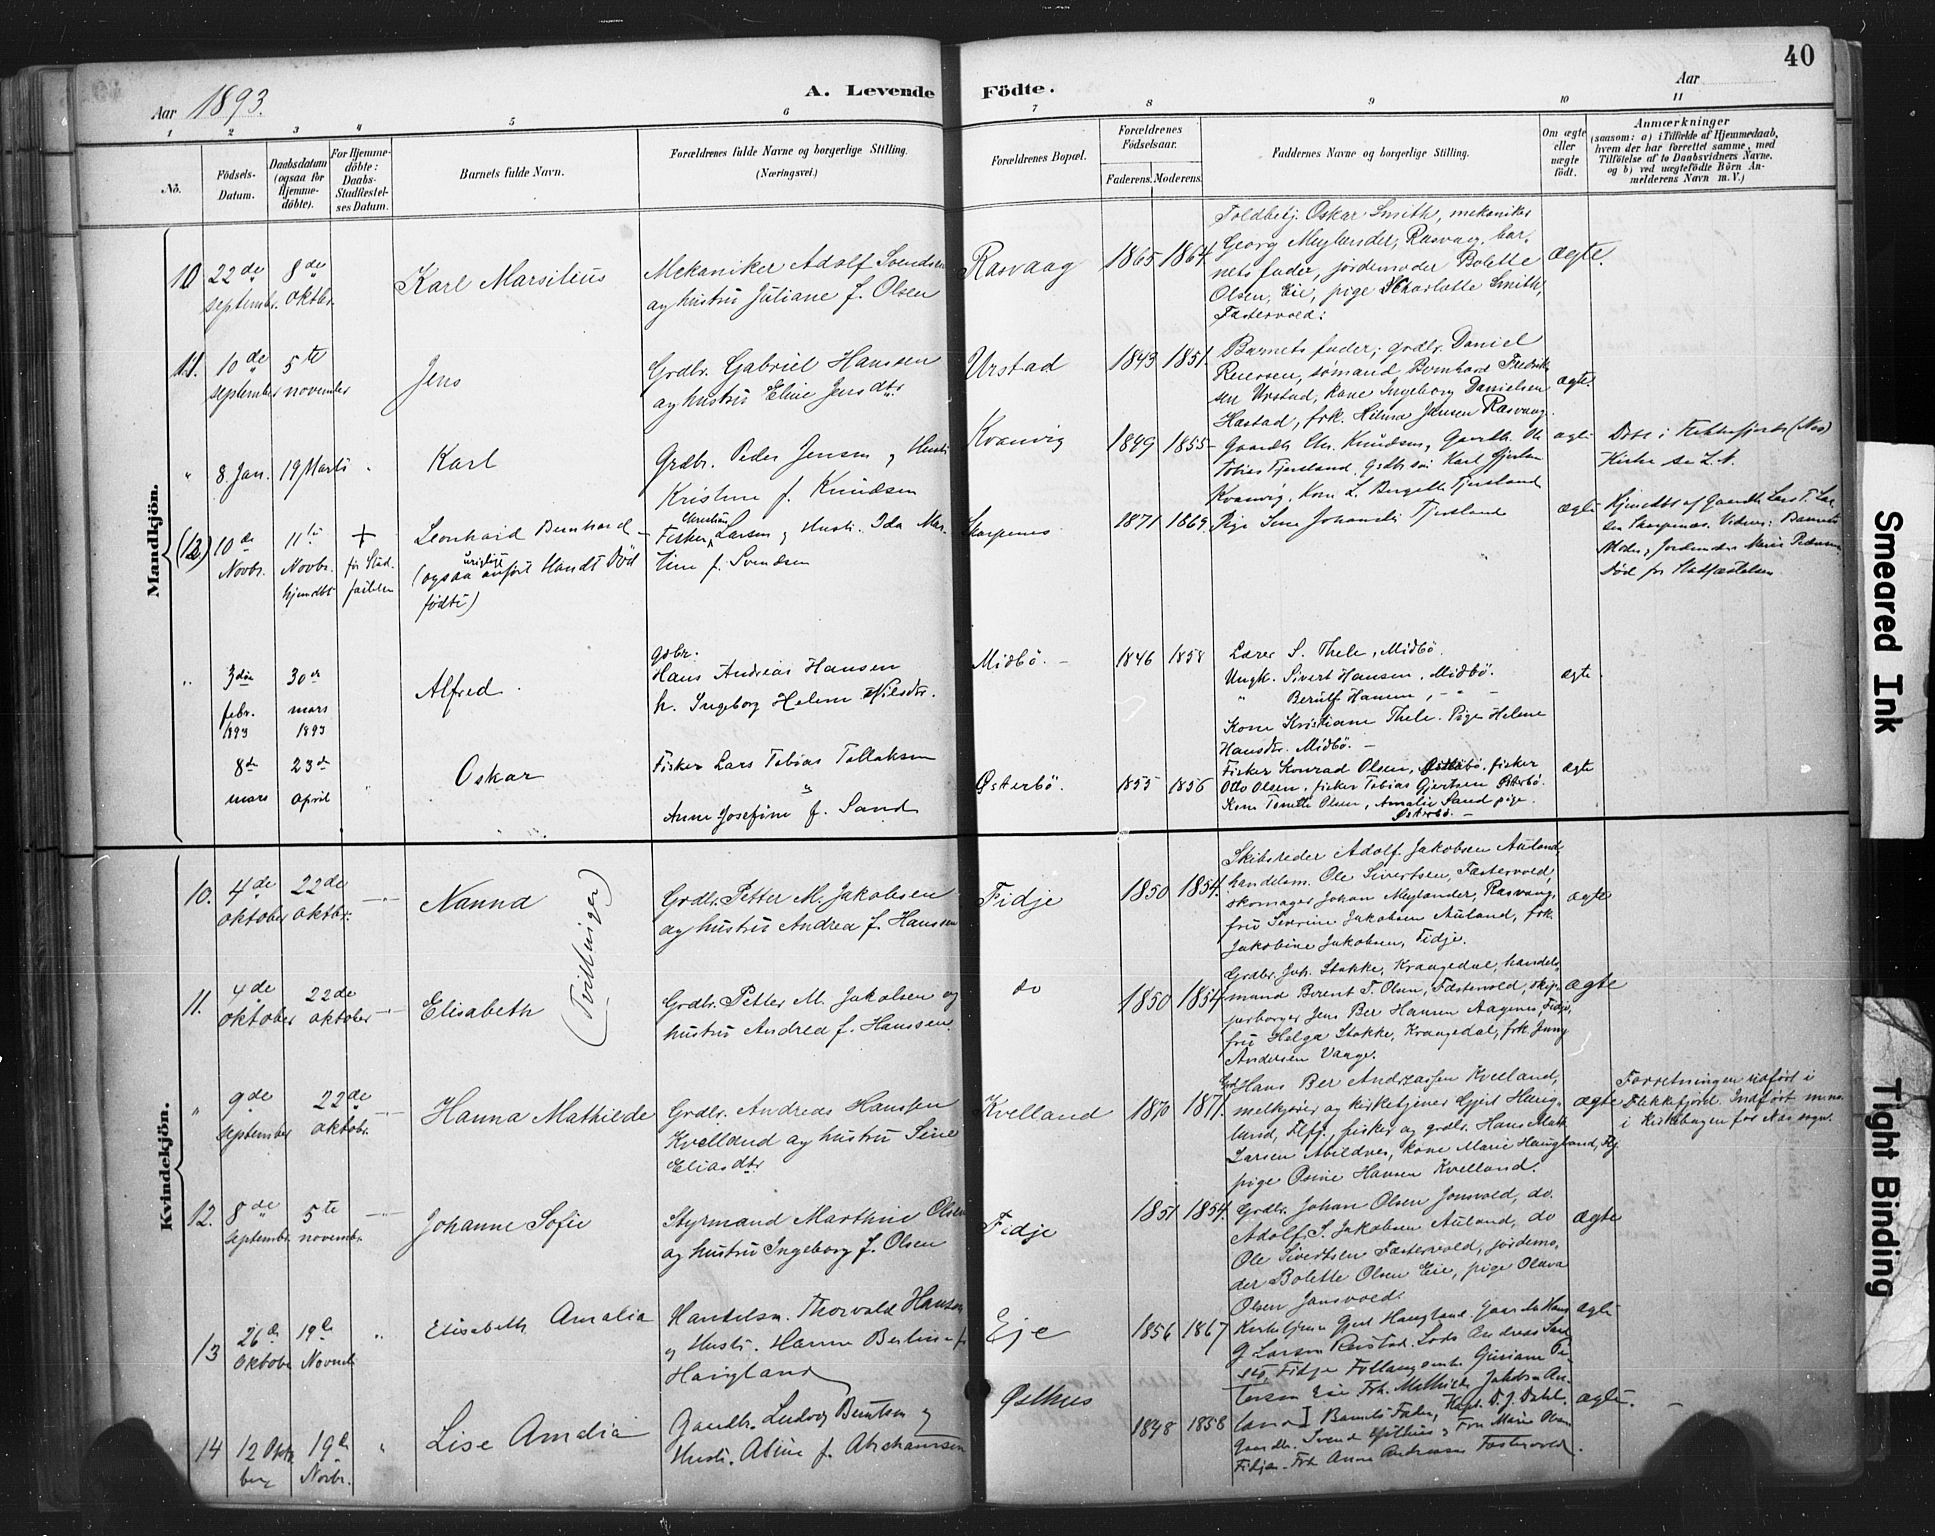 40
Aar 1893.
A. Levende Födte.
Aar
1 2 3 4 5 6 7 8 9 10 11
No.
Födsels-Datum.
Daabsdatum (ogsaa för Hjemme-döbte).
For Hjemme-döbte: Daabs-Stadfæstel-ses Datum.
Barnets fulde Navn.
Forældrenes fulde Navne og borgerlige Stilling. (Næringsvei.)
Forældrenes Bopæl.
Forældrenes Födselsaar.
Faderens. Moderens.
Faddernes Navne og borgerlige Stilling.
Om ægte eller uægte födt.
Anmærkninger
(saasom: a) i Tilfælde af Hjemmedaab, hvem der har forrettet samme, med Tilföielse af to Daabsvidners Navne, og b) ved uægtefödte Börn An-melderens Navn m. V.)
Mandkjön.
10 22de septembr. 8de oktbr.
Karl Marsilius
Mekaniker Adolf Svendsen
og hustru Juliane f. Olsen
Rasvaag
1865 1864
Toldbetj. Oskar Smith, mekaniker
Georg Meylænder, Rasvaag, bar-
nets fader, jordemoder Bolette
Olsen, Eie, pige Charlotte Smith,
Fastervold.
ægte.
11. 10de september 5te november
Jens
Grdbr. Gabriel Hanssen
og hustru Eline Jensdtr
Urstad
1843 1851.
Barnets fader, grdbr. Daniel
Reiersen, sømand Bernhard Fredrik-
sen Urstad, kone Ingeborg Danielsen
Hastad, frk. Hilma Jansen Rasvaag.
ægte.
" 8 Jan. 19 Marts "
Karl
Grdbr. Peder Jensen og Hustr
Kristine f. Knudsen
Kvanvig
1849 1855
Gaardb. Chr. Knudsen, Gaardb. Ole
Tobias Tjersland, Grdbr søn Karl
Kvanvig, Kone L. Bergette Tjersland
Pige Sine Tjersland
ægte
Døbt i Fekkefjords (Nes)
Kirke
(12) 10de Novbr. 11te Novbr. hjemdbt
+ før Stad-fæstelsen
Leonhard Bernhard
(ogsaa urigtigt anført blandt Død
fødte)
Fisker Christian Larsen og Hustr. Ida Mar-
tine f. Svendsen
Skarpenes
1871 1869.
ægte
Hjemdbt af Gaardb. Lars T. Lar-
sen Skarpenes. Vidner: Barnets
Moder, Jordemoder Marie Pedersen
Død før Stadfæstelsen.
" 3die febr. 1893 30te mars 1893
Alfred.
Gdbr.
Hans Andreas Hansen
h. Ingeborg Helene Nilsdtr.
Midbö.
1846 1858
Lærer S. Thele, Midbö.
Ungk. Sivert Hansen, Midbö.
" Berulf Hansen, - " -
Kone Kristiane Thele. Pige Helene
Hansdtr. Midbö.
ægte
8de mars 23de april "
Oskar
Fisker Lars Tobias Tollaksen
"
Anne Josefine f. Sand
Østerbö.
1855 1856
Fisker Konrad Olsen, Østerbö, fisker
Otto Olsen, fisker Tobias Gjertsen Østerbö.
Kone Tonette Olsen, Amalie Sand pige.
Østerbö.
ægte
Kvindekjön.
10. 4de oktober 22de oktbr.
Nanna
(Tvillinger)
Grdbr. Petter M. Jakobsen
og hustru Andrea f. Hanssen
Fidje
1850 1854.
Skibsreder Adolf Jakobsen Auland,
handelsm. Ole Sivertsen, Fastervold,
skomager Johan Meylænder, Rasvaag,
fru Severine Jakobsen Auland, frk
Jakobine Jakobsen, Fidje.
ægte
11. 4de oktober 22de oktober
Elisabeth
Grdbr. Petter M. Jakobsen og
hustru Andrea f. Hanssen.
do
1850 1854
Grdbr. Joh. Stakke, Kraagedal, handels-
mand Berent T. Olsen, Fastervold, skip-
perborger Jens Ber Hansen Aagenes, Fidje,
fru Helga Stakke, Kraagedal, frk Jung
Andersen Vaage.
ægte
" 9de september 22de oktobr.
Hanna Mathilde
Grdbr. Andreas Hansen
Kvelland og hustru Sine
Eliasdtr
Kvelland
1870 1871.
Grdbr. Hans Ber Andreassen Kvelland,
melkjører og kirketjener Gjert Haug-
land, Flfj., fisker og grdbr. Hans Math
Larsen Abildnes, kone Marie Haugland, Flfj.
pige Osine Hansen Kvelland.
ægte
Forretningen udført i
Flekkefjord. Indført m. no.
i Kirkebogen for Nes sogn.
12. 8de septembr. 5te novembr.
Johanne Sofie
Styrmand Marthin Olsen
og hustru Ingeborg f. Olsen
Fidje
1851 1854.
Grdbr. Johan Olsen Jonsvold, do.
Adolf S. Jakobsen Auland, do
Ole Sivertsen Fastervold, jordemo-
der Bolette Olsen Eie, pige Olava
Olsen Jansvold.
ægte
13 26de Oktober 19de Novmbr "
Elisabeth Amalia
Handelsm. Thorvald Hansen
og Hustr. Hanne Bertine f.
Haugland
Eje
1856 1867
Kirketjener Gjert Haugland. Gaardb. Hans
G Larsen Røstad. Lods Andreas
Fidje Juriane Pe-
tersen Eie Frk. Mathilde Jakobsen Au-
land
ægte
14 12 Oktober 19de Novbr. "
Lise Amalia
Gaardbr. Ludvig Berntsen og
Hustr. Abine f. Abrahamsen
Østhus
1848 1858
Barnets Fader, Kapt. D. J. Dahl.
Gaardbr. Svend Østhus, Fru Marie Olsen
Fidje. Frk Anna Andreassen Fastervold.
ægte.
Smeared Ink
Tight Binding